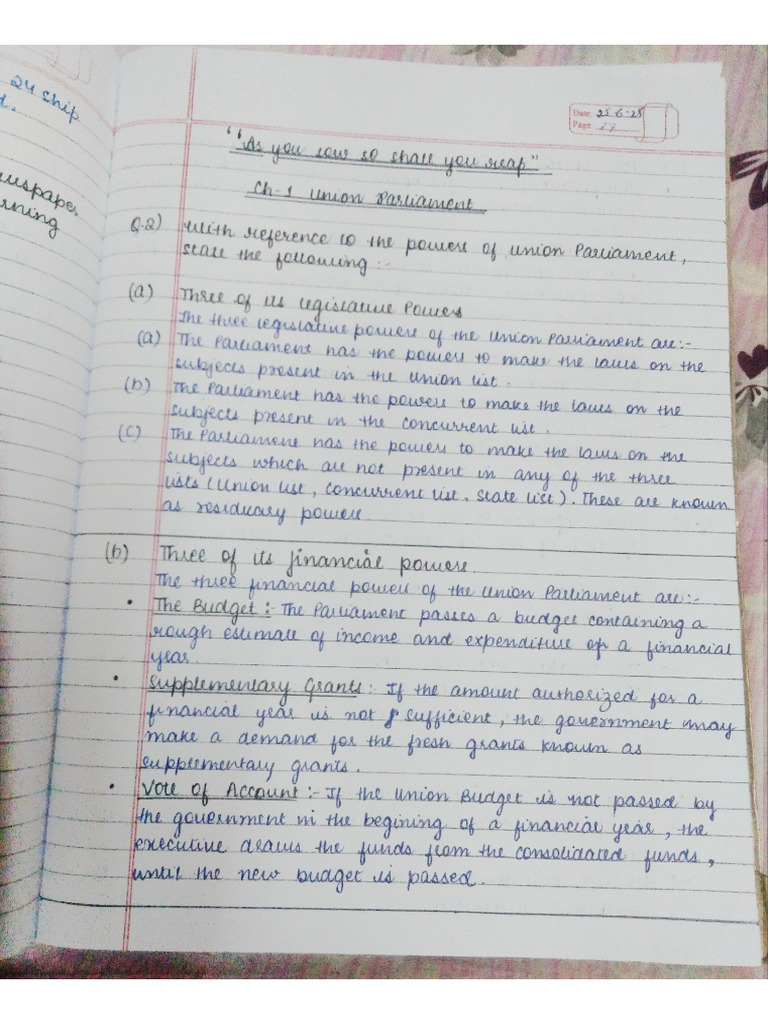 24 ship
d.
uspaper
rning
Date 25-6-25
Page 27
"As you sow so shall you reap"
Ch-1 Union Parliament
Q.2) With reference to the powers of Union Parliament,
state the following :-
(a) Three of its legislative Powers
The three legislative powers of the Union Parliament are:-
(a) The Parliament has the powers to make the laws on the
subjects present in the union list.
(b) The Parliament has the powers to make the laws on the
subjects present in the concurrent list.
(c) The Parliament has the powers to make the laws on the
subjects which are not present in any of the three
lists (Union list, Concurrent list, State list). These are known
as residuary powers
(b) Three of its financial powers.
The three financial powers of the Union Parliament are:-
• The Budget :- The Parliament passes a budget containing a
rough estimate of income and expenditure of a financial
year.
• Supplementary Grants : If the amount authorized for a
financial year is not sufficient, the government may
make a demand for the fresh grants known as
supplementary grants.
• Vote of Account :- If the Union Budget is not passed by
the government in the begining of a financial year, the
executive draws the funds from the consolidated funds,
until the new budget is passed.